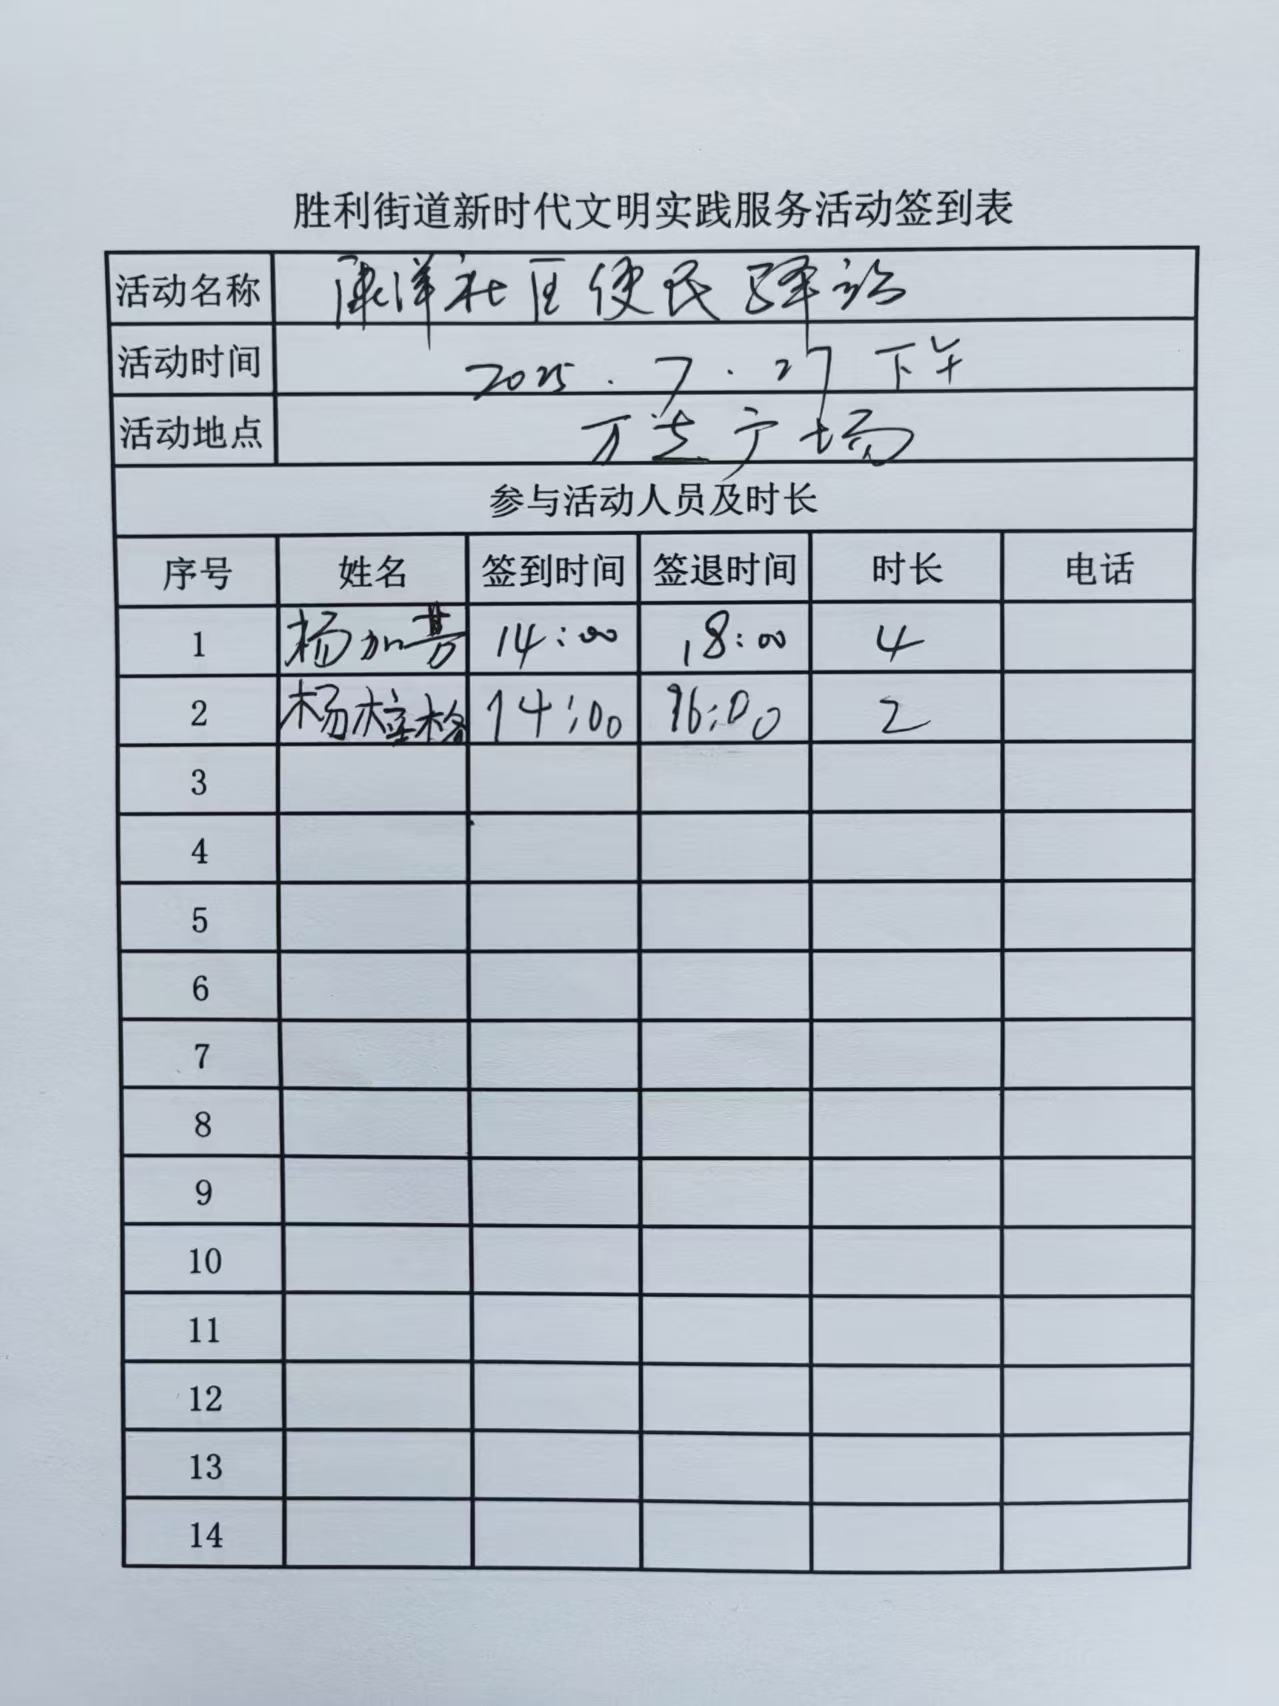 胜利街道新时代文明实践服务活动签到表
活动名称 康洋社区便民驿站
活动时间 2025.7.27 下午
活动地点 万达广场
参与活动人员及时长
序号 姓名 签到时间 签退时间 时长 电话
1 杨加芳 14:00 18:00 4
2 杨 14:00 16:00 2
3
4
5
6
7
8
9
10
11
12
13
14